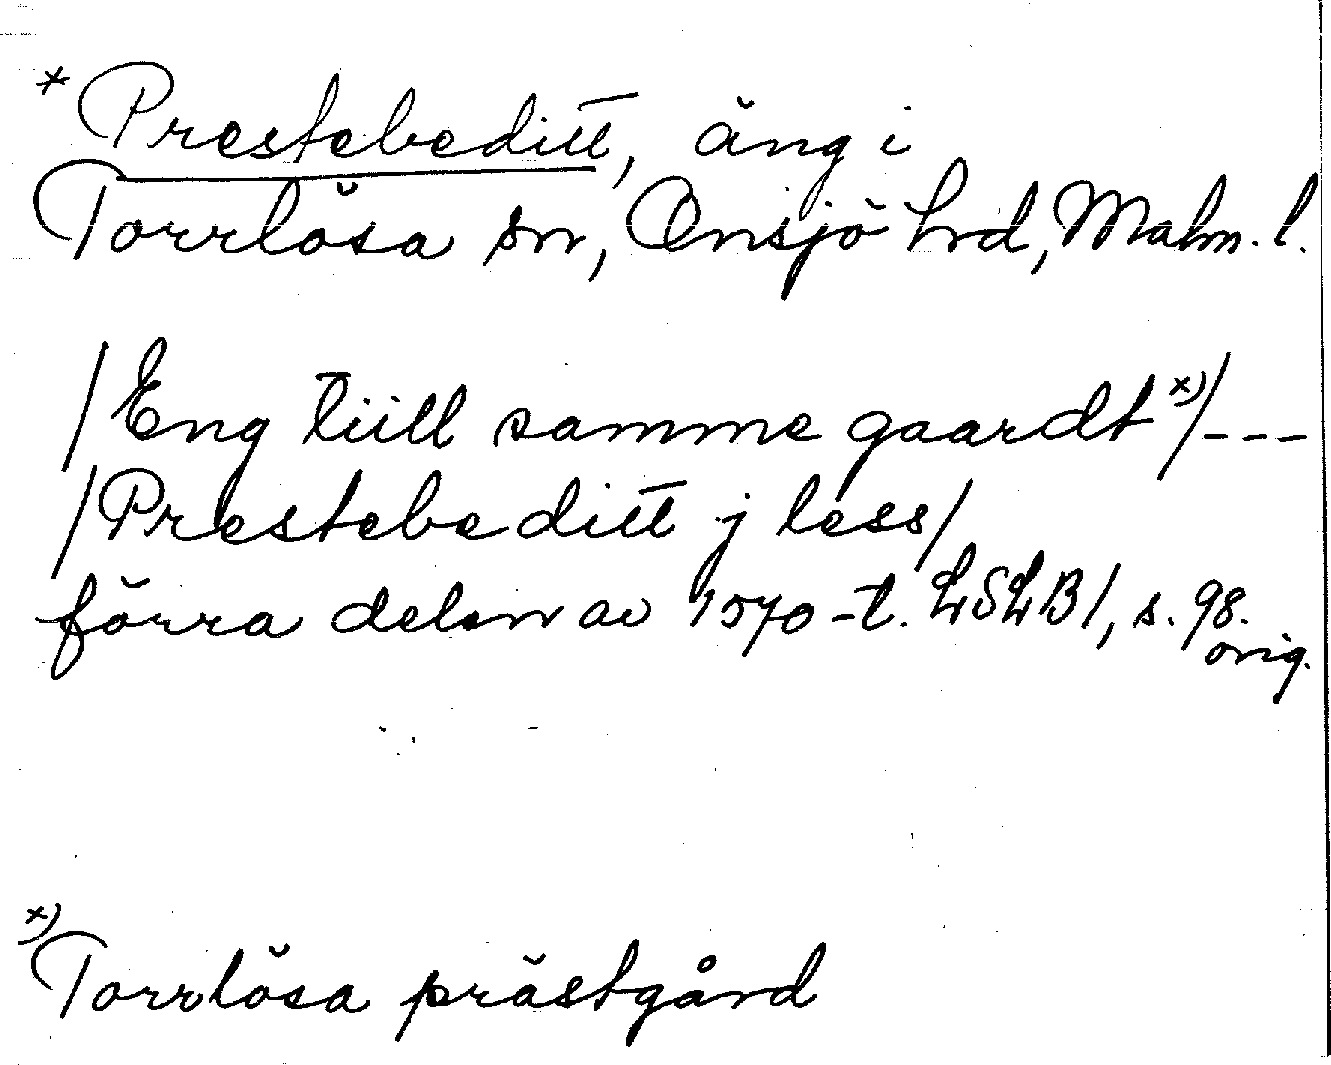 * Prestebeditt, äng i
Torrlösa sn, Onsjö hrd, Malm. l.
/Eng tiill samme gaardt x)/---
/Prestebeditt j less/
förra delen av 1570-t. LSLB1, s. 98.
orig.
x)
Torrlösa prästgård